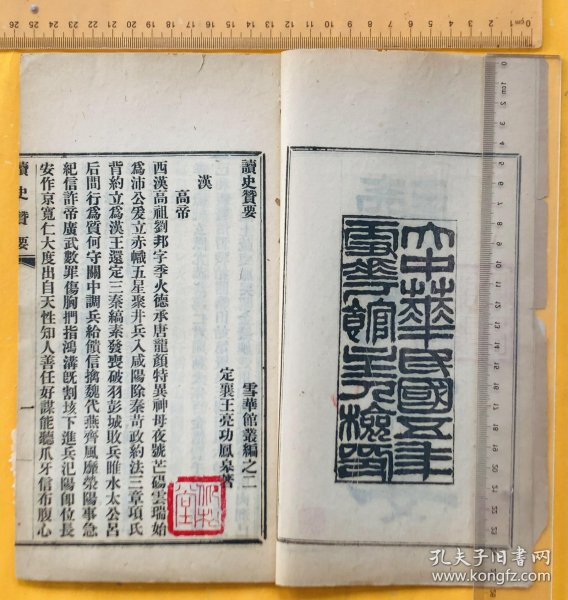 大中華民國五年
雪華館主人檢印
讀史贊要
雪華館叢編之二
定襄王亮功鳳皋著
漢
高帝
西漢高祖劉邦字季火德承唐龍顏特異神母夜號芒碭雲瑞始
爲沛公爰立赤幟五星聚井兵入咸陽除秦苛政約法三章項氏
背約立爲漢王還定三秦縞素發喪破羽彭城敗兵睢水太公呂
后間行爲質何守關中調兵給饋信擒魏代燕齊風靡滎陽事急
紀信誑帝廣武數罪傷胸捫指鴻溝旣割垓下進兵汜陽卽位長
安作京寬仁大度出自天性知人善任好謀能聽爪牙信布腹心
讀史贊要
一
孔夫子旧书网
www.kongfz.com